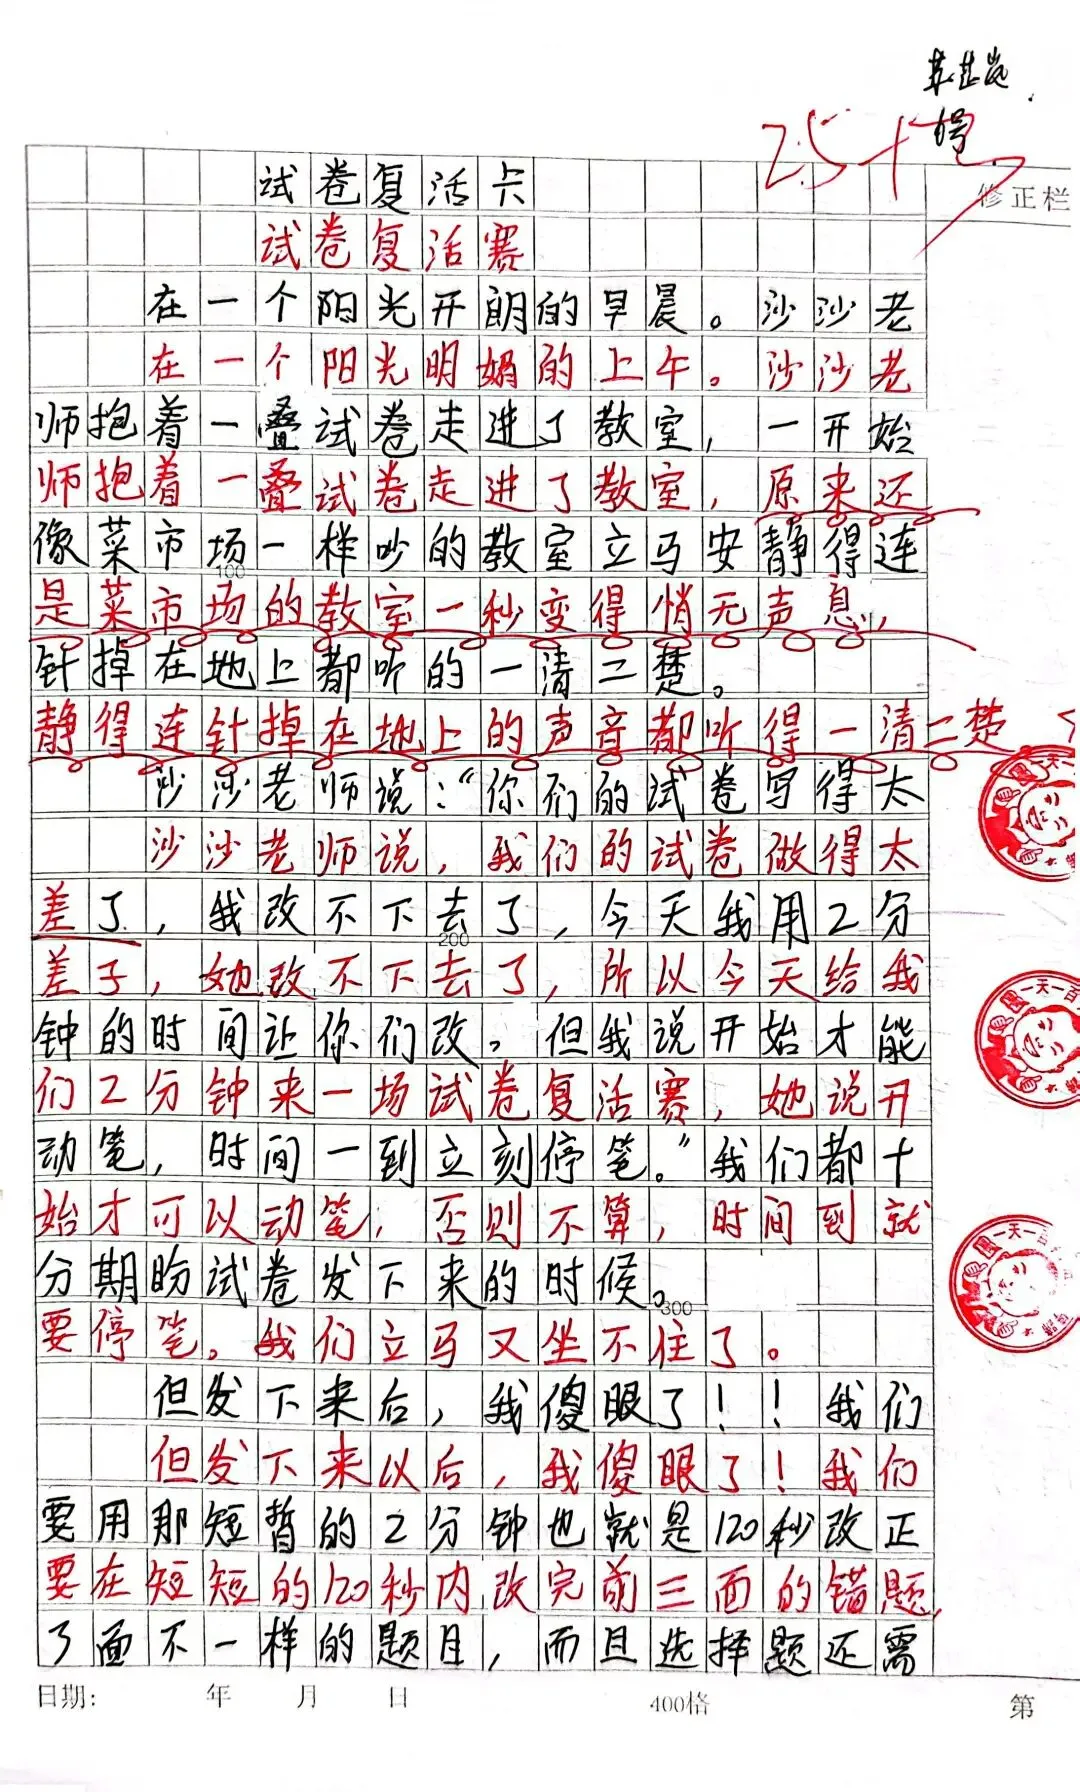 6号
25+
修正栏
试卷复活卡
试卷复活赛
在一个阳光开朗的早晨。沙沙老
在一个阳光明媚的上午。沙沙老
师抱着一叠试卷走进了教室，一开始
师抱着一叠试卷走进了教室，原来还
像菜市场一样吵的教室立马安静得连
100
是菜市场的教室一秒变得悄无声息，
针掉在地上都听的一清二楚。
静得连针掉在地上的声音都听得一清二楚
沙沙老师说：“你们的试卷写得太
沙沙老师说，我们的试卷做得太
差了，我改不下去了，今天我用2分
200
差子，她改不下去了，所以今天给我
钟的时间让你们改，但我说开始才能
们2分钟来一场试卷复活赛，她说开
动笔，时间一到立刻停笔。”我们都十
始才可以动笔，否则不算，时间到就
分期盼试卷发下来的时候。
300
要停笔。我们立马又坐不住了。
但发下来后，我傻眼了！！我们
但发下来以后，我傻眼了！我们
要用那短暂的2分钟也就是120秒改正
要在短短的120秒内改完前三面的错题，
了面不一样的题目，而且选择题还需
日期： 年 月 日 400格 第
一天一百
一天一百
一天一百